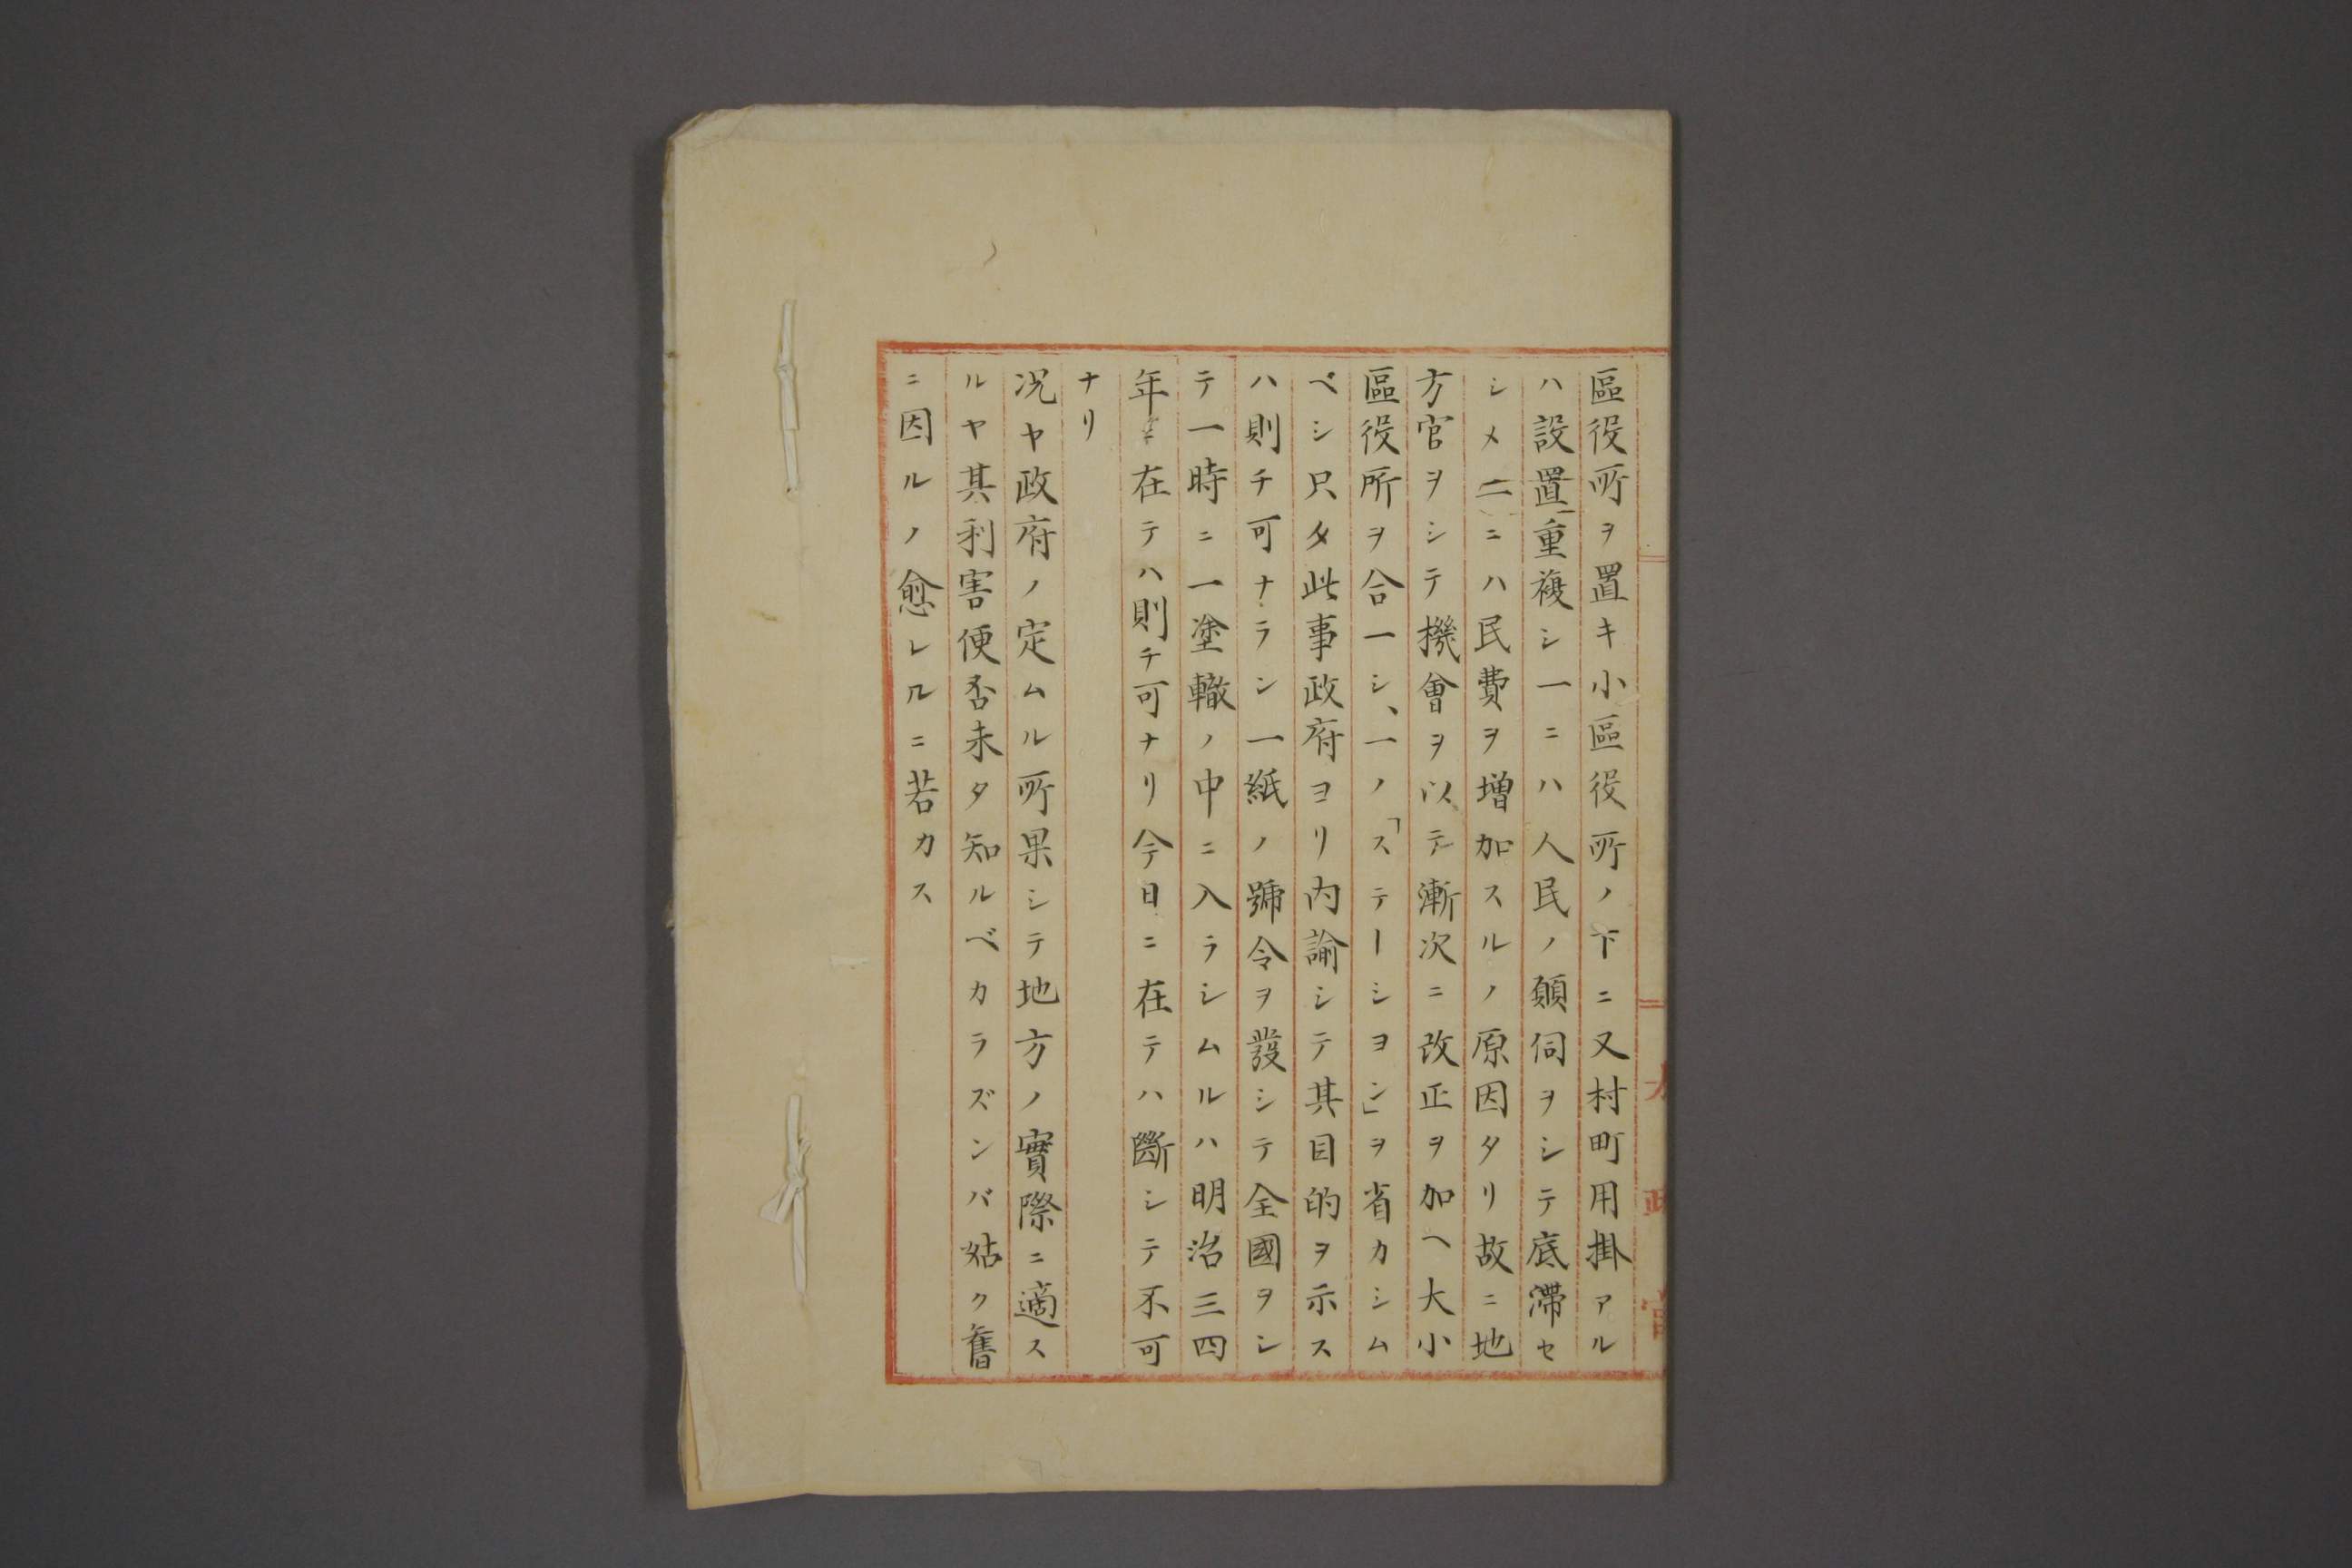 區役所ヲ置キ小區役所ノ下ニ又村町用掛アル
ハ設置重複シ一ニハ人民ノ願伺ヲシテ底滯セ
シメ二ニハ民費ヲ増加スルノ原因タリ故ニ地
方官ヲシテ機會ヲ以テ漸次ニ改正ヲ加ヘ大小
區役所ヲ合一シ、一ノ「ステーシヨン」ヲ省カシム
ベシ只タ此事政府ヨリ内諭シテ其目的ヲ示ス
ハ則チ可ナラン一紙ノ號令ヲ發シテ全國ヲシ
テ一時ニ一塗轍ノ中ニ入ラシムルハ明治三四
年在テハ則チ可ナリ今日ニ在テハ斷シテ不可
ナリ
况ヤ政府ノ定ムル所果シテ地方ノ實際ニ適ス
ルヤ其利害便否未タ知ルベカラズンバ姑ク舊
ニ因ルノ愈レルニ若カス
太政官